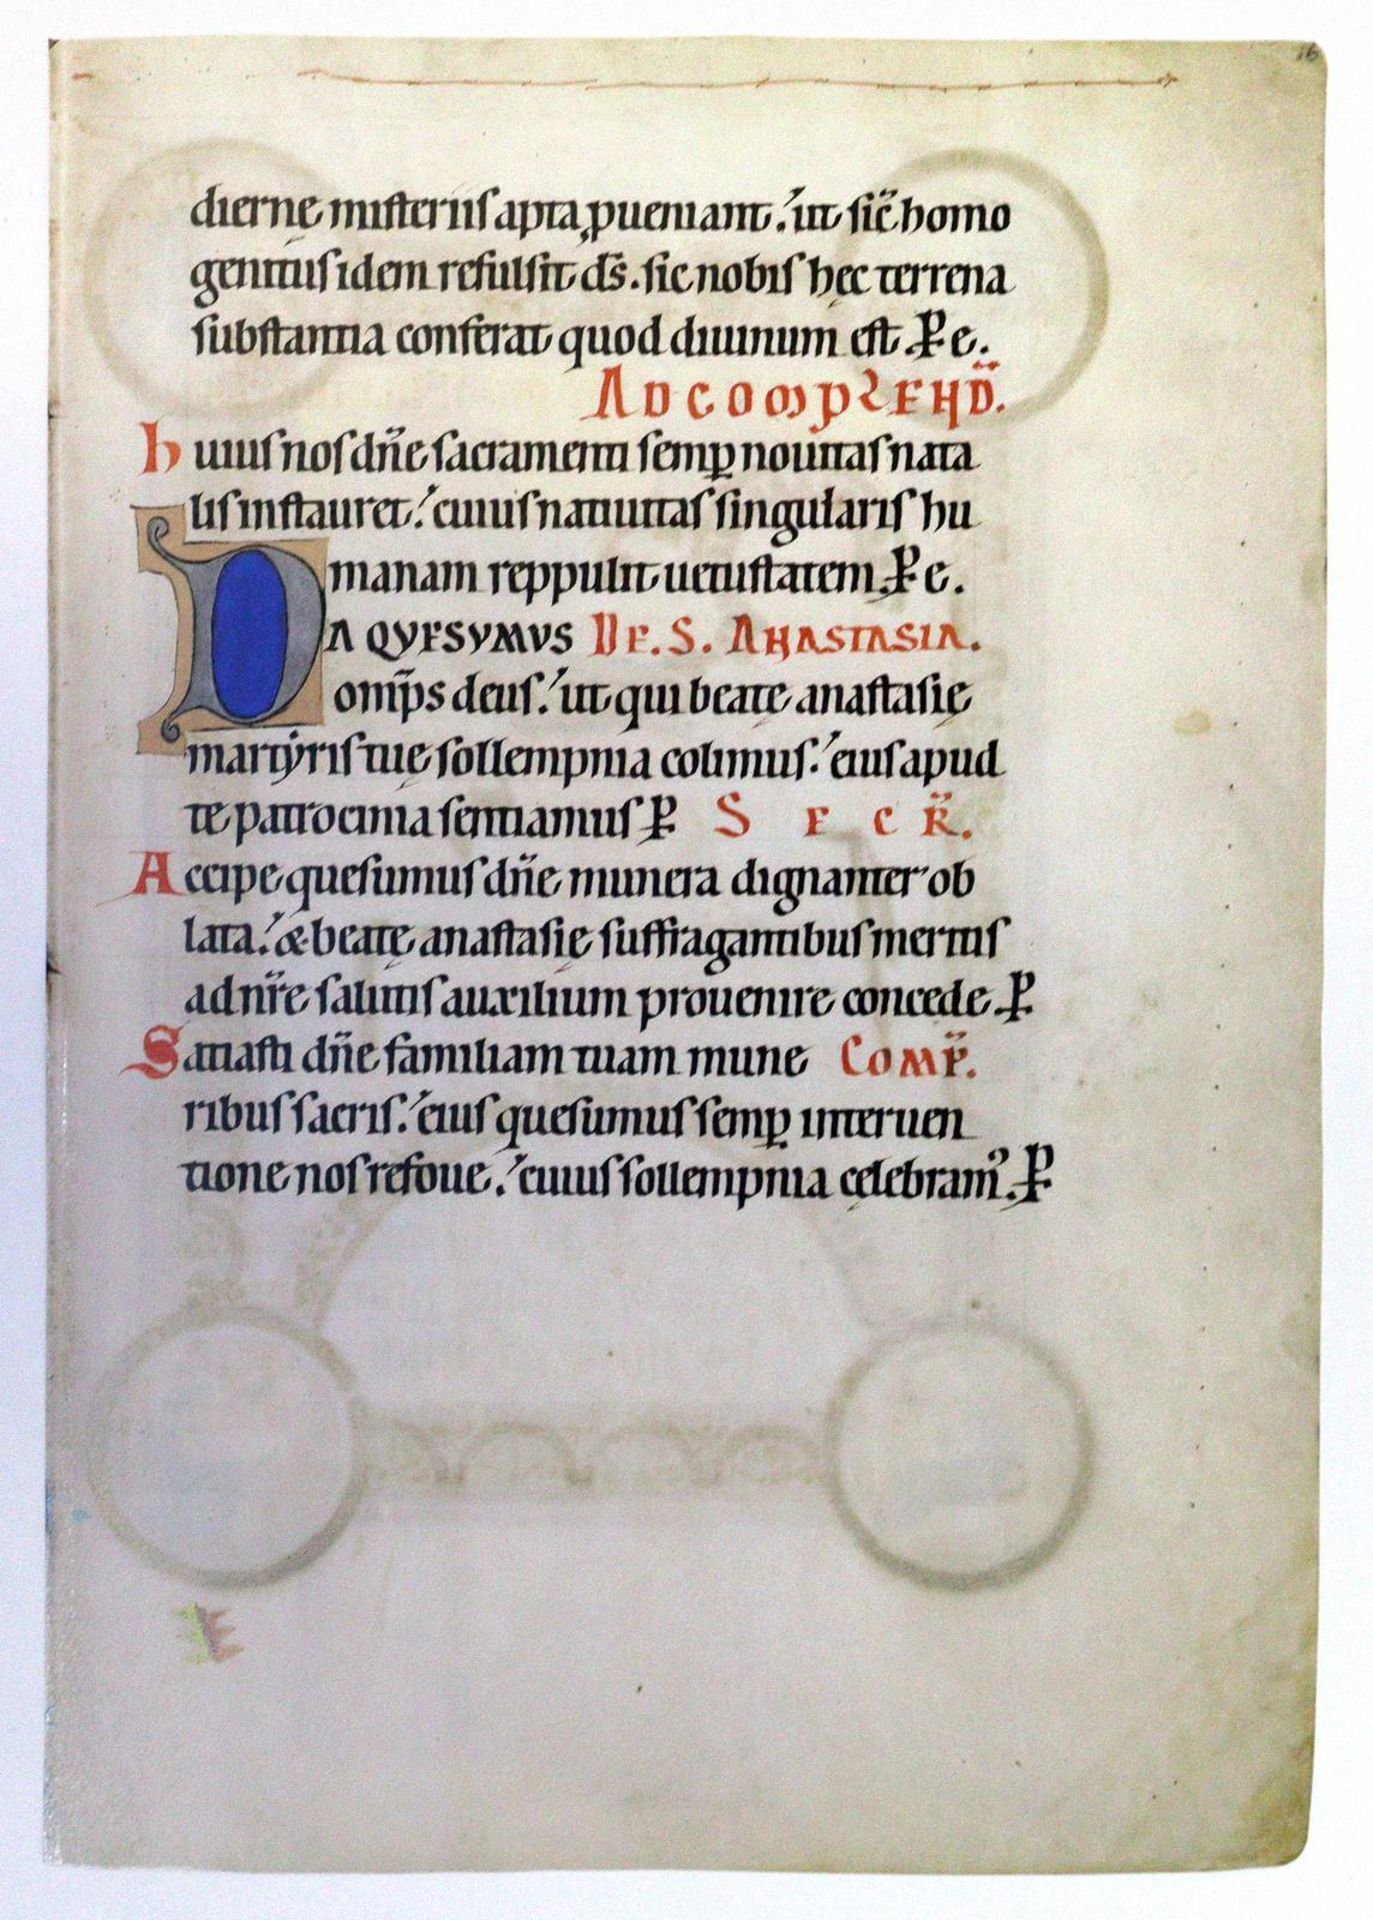 16
dierne misteriis apta ꝓueniant. ut sic̄ homo
genitus idem refulsit ds̄. sic nobis hęc terrena
substantia conferat quod diuinum est. P̄ e.
AD COMPLEND̄.
Huius nos dn̄e sacramenti semꝑ nouitas nata
lis instauret. cuius natiuitas singularis hu
manam reppulit uetustatem. P̄ e.
DA QVESVMVS DE. S. ANASTASIA.
omp̄s deus. ut qui beatę anastasię
martyris tuę sollempnia colimus. eius apud
te patrocinia sentiamus P̄ SECR̄.
Accipe quesumus dn̄e munera dignanter ob
lata. & beatę anastasię suffragantibus meritis
ad nr̄e salutis auxilium prouenire concede. P̄
Satiasti dn̄e familiam tuam mune COMP̄.
ribus sacris. eius quesumus semꝑ interuen
tione nos refoue. cuius sollempnia cęlebram᷒. P̄